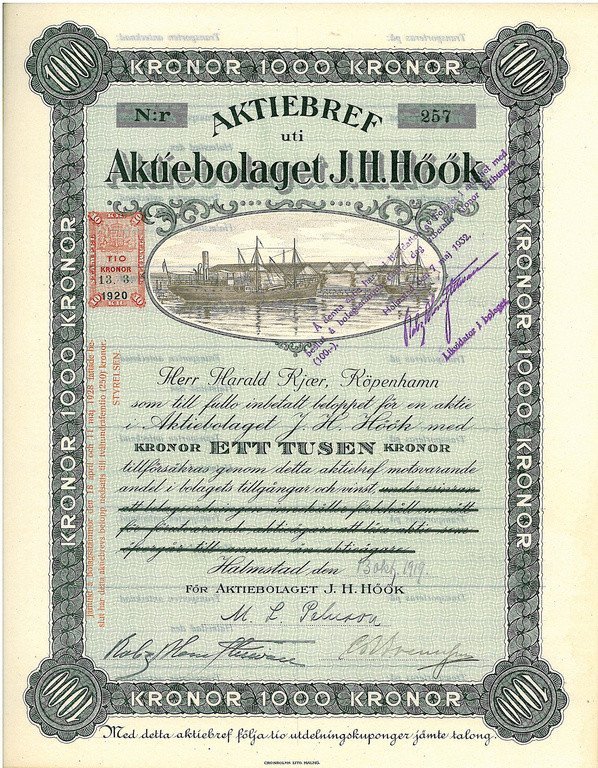 Transporteras på:
Transporten antecknad:
1000
KRONOR 1000 KRONOR
1000
N:r
AKTIEBREF
257
uti
Aktiebolaget J. H. Höök
10 10
TIO
KRONOR
13. 3.
1920
10 10
å bolagets
(100:-).
1932.
Likvidator i bolaget
Herr Harald Kjær, Köpenhamn
som till fullo inbetalt beloppet för en aktie
i Aktiebolaget J. H. Höök med
KRONOR ETT TUSEN KRONOR
tillförsäkras genom detta aktiebref motsvarande
andel i bolagets tillgångar och vinst,
Halmstad den 1919
FÖR AKTIEBOLAGET J. H. HÖÖK
Jämlikt å bolagsstämmor den 18 april och 11 maj 1928 fattade be-
slut har detta aktiebrevs belopp nedsatts till tvåhundrafemtio (250) kronor.
STYRELSEN.
KRONOR 1000 KRONOR
KRONOR 1000 KRONOR
1000
KRONOR 1000 KRONOR
1000
Med detta aktiebref följa tio utdelningskuponger jämte talong.
CRONHOLMS LITO. MALMÖ.